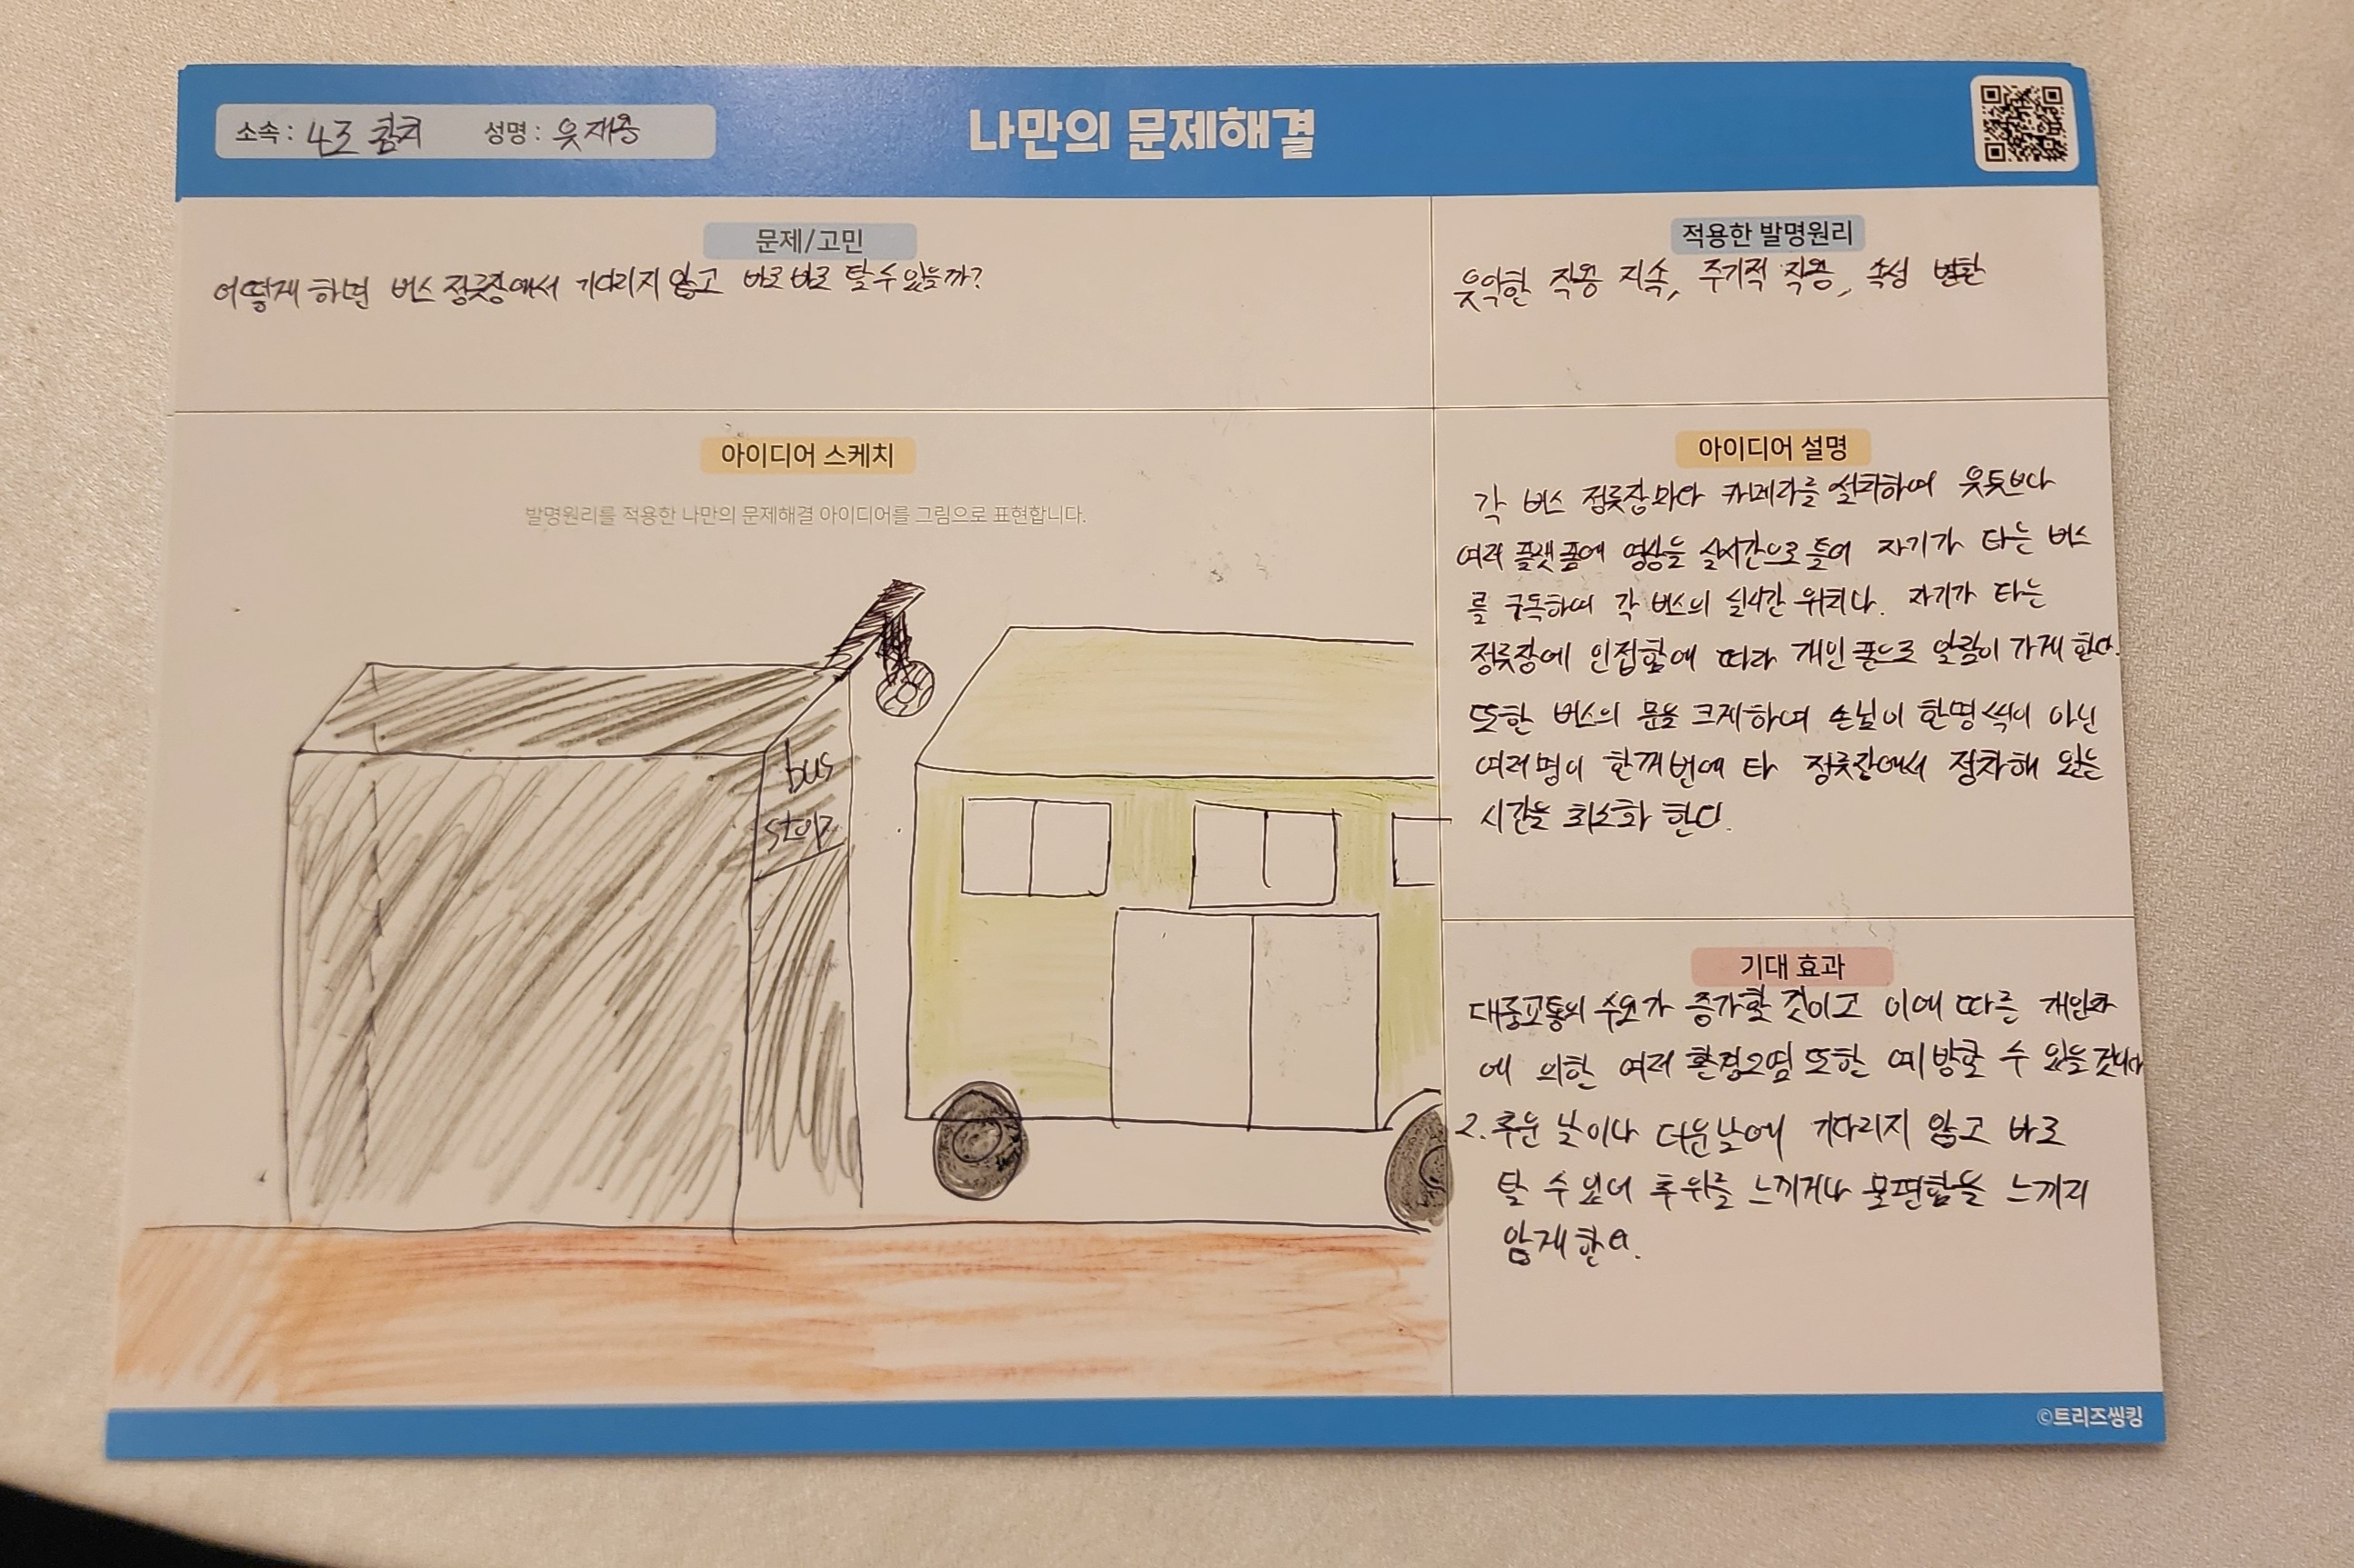 나만의 문제해결
소속 : 4조 참치 성명 : 윳재용
문제/고민
어떻게 하면 버스 정륫장에서 기다리지 않고 바로바로 탈 수 있을까?
적용한 발명원리
윳익한 작용 지속, 주기적 작용, 속성 변환
아이디어 스케치
발명원리를 적용한 나만의 문제해결 아이디어를 그림으로 표현합니다.
bus
stop
아이디어 설명
각 버스 정륫장마다 카메라를 설치하여 윳튯브나
여러 플랫폼에 영상을 실시간으로 틀어 자기가 타는 버스
를 구독하여 각 버스의 실시간 위치나. 자기가 타는
정륫장에 인접함에 따라 개인 폰으로 알림이 가게 한다.
또한 버스의 문을 크게하여 손님이 한명씩이 아닌
여러명이 한꺼번에 타 정륫장에서 정차해 있는
시간을 최소화 한다.
기대 효과
대중교통의 수요가 증가할 것이고 이에 따른 개인차
에 의한 여러 환경오염 또한 예방할 수 있을 것이다
2. 추운 날이나 더운날에 기다리지 않고 바로
탈 수 있어 추위를 느끼거나 불편함을 느끼지
않게 한다.
©트리즈씽킹